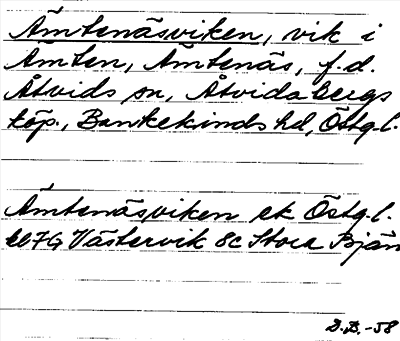 Åmtenäsviken, vik i
Åmten, Åmtenäs, f.d.
Åtvids sn, Åtvidabergs
köp., Bankekinds hd, Östg.l.
Åmtenäsviken ek Östg.l.
bl 7G Västervik 8c Stora Bjän
D.D.-58